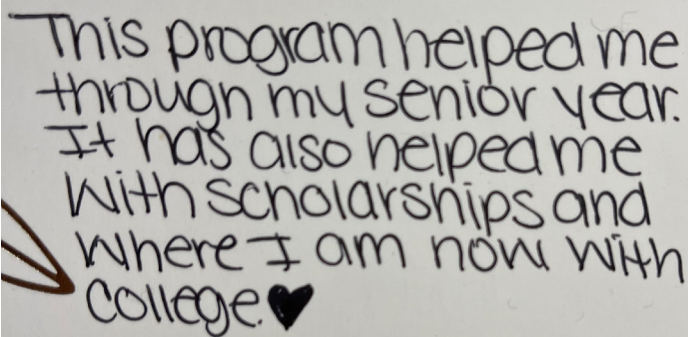 This program helped me
through my senior year.
It has also helped me
with scholarships and
where I am now with
college.♥